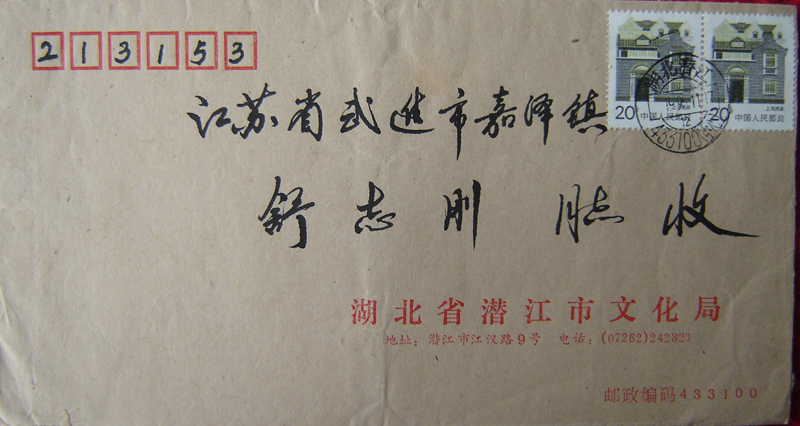 213153
20 中国人民邮政
20 中国人民邮政
上海民居
湖北潜江
江苏省武进市嘉泽镇
舒志刚 收
湖北省潜江市文化局
地址：潜江市江汉路9号 电话：(07262)242823
邮政编码433100